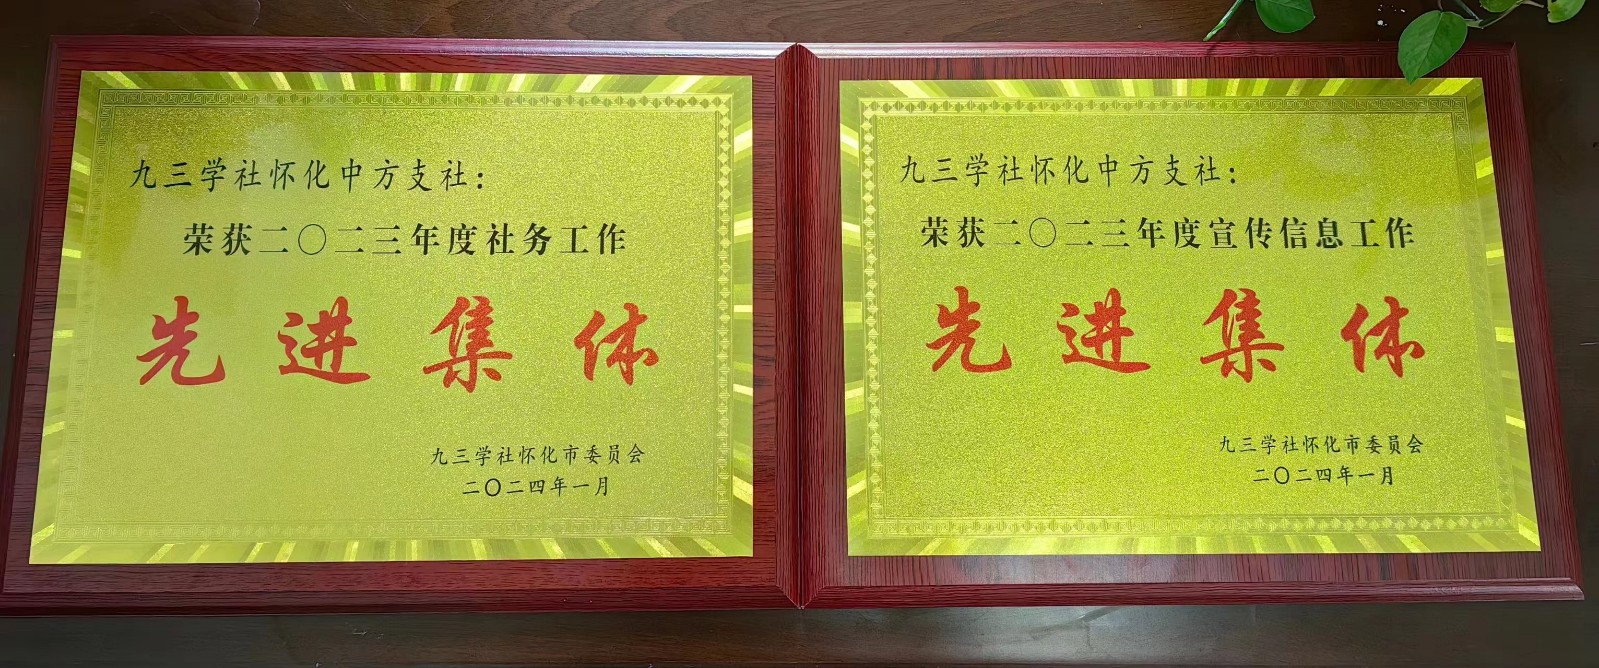 九三学社怀化中方支社：
荣获二〇二三年度社务工作
先进集体
九三学社怀化市委员会
二〇二四年一月
九三学社怀化中方支社：
荣获二〇二三年度宣传信息工作
先进集体
九三学社怀化市委员会
二〇二四年一月